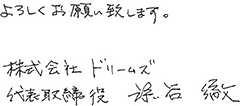 よろしくお願い致します。
株式会社 ドリームズ
代表取締役